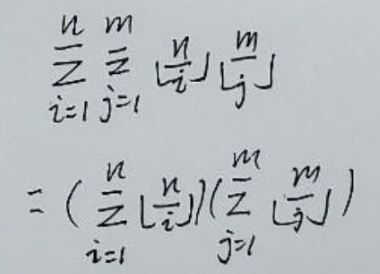 \sum_{i=1}^{n} \sum_{j=1}^{m} \lfloor \frac{n}{i} \rfloor \lfloor \frac{m}{j} \rfloor
= ( \sum_{i=1}^{n} \lfloor \frac{n}{i} \rfloor ) ( \sum_{j=1}^{m} \lfloor \frac{m}{j} \rfloor )